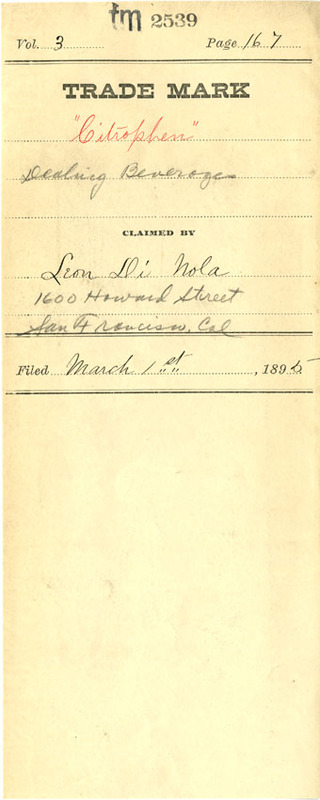 tm 2539
Vol. 3 Page 167
TRADE MARK
"Citrophen"
Beverages
CLAIMED BY
Leon Di Nola
1600 Howard Street
San Francisco, Cal
Filed March 1st , 1895